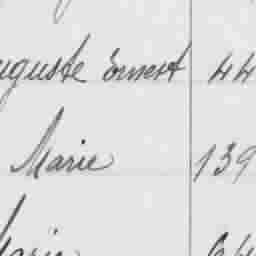 uguste Ernest 44
Marie 139
Marie 64